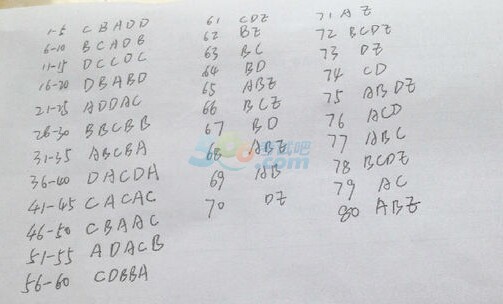 1-5 CBADD
6-10 BCADB
11-15 DCCDC
16-20 DBABD
21-25 ADDAC
26-30 BBCBB
31-35 ABCBA
36-40 DACDA
41-45 CACAC
46-50 CBAAC
51-55 ADACB
56-60 CDBBA
61 CDZ
62 BZ
63 BC
64 BD
65 ABZ
66 BCZ
67 BD
68 ABZ
69 AB
70 DZ
71 AZ
72 BCDZ
73 DZ
74 CD
75 ABDZ
76 ACD
77 ABC
78 BCDZ
79 AC
80 ABZ